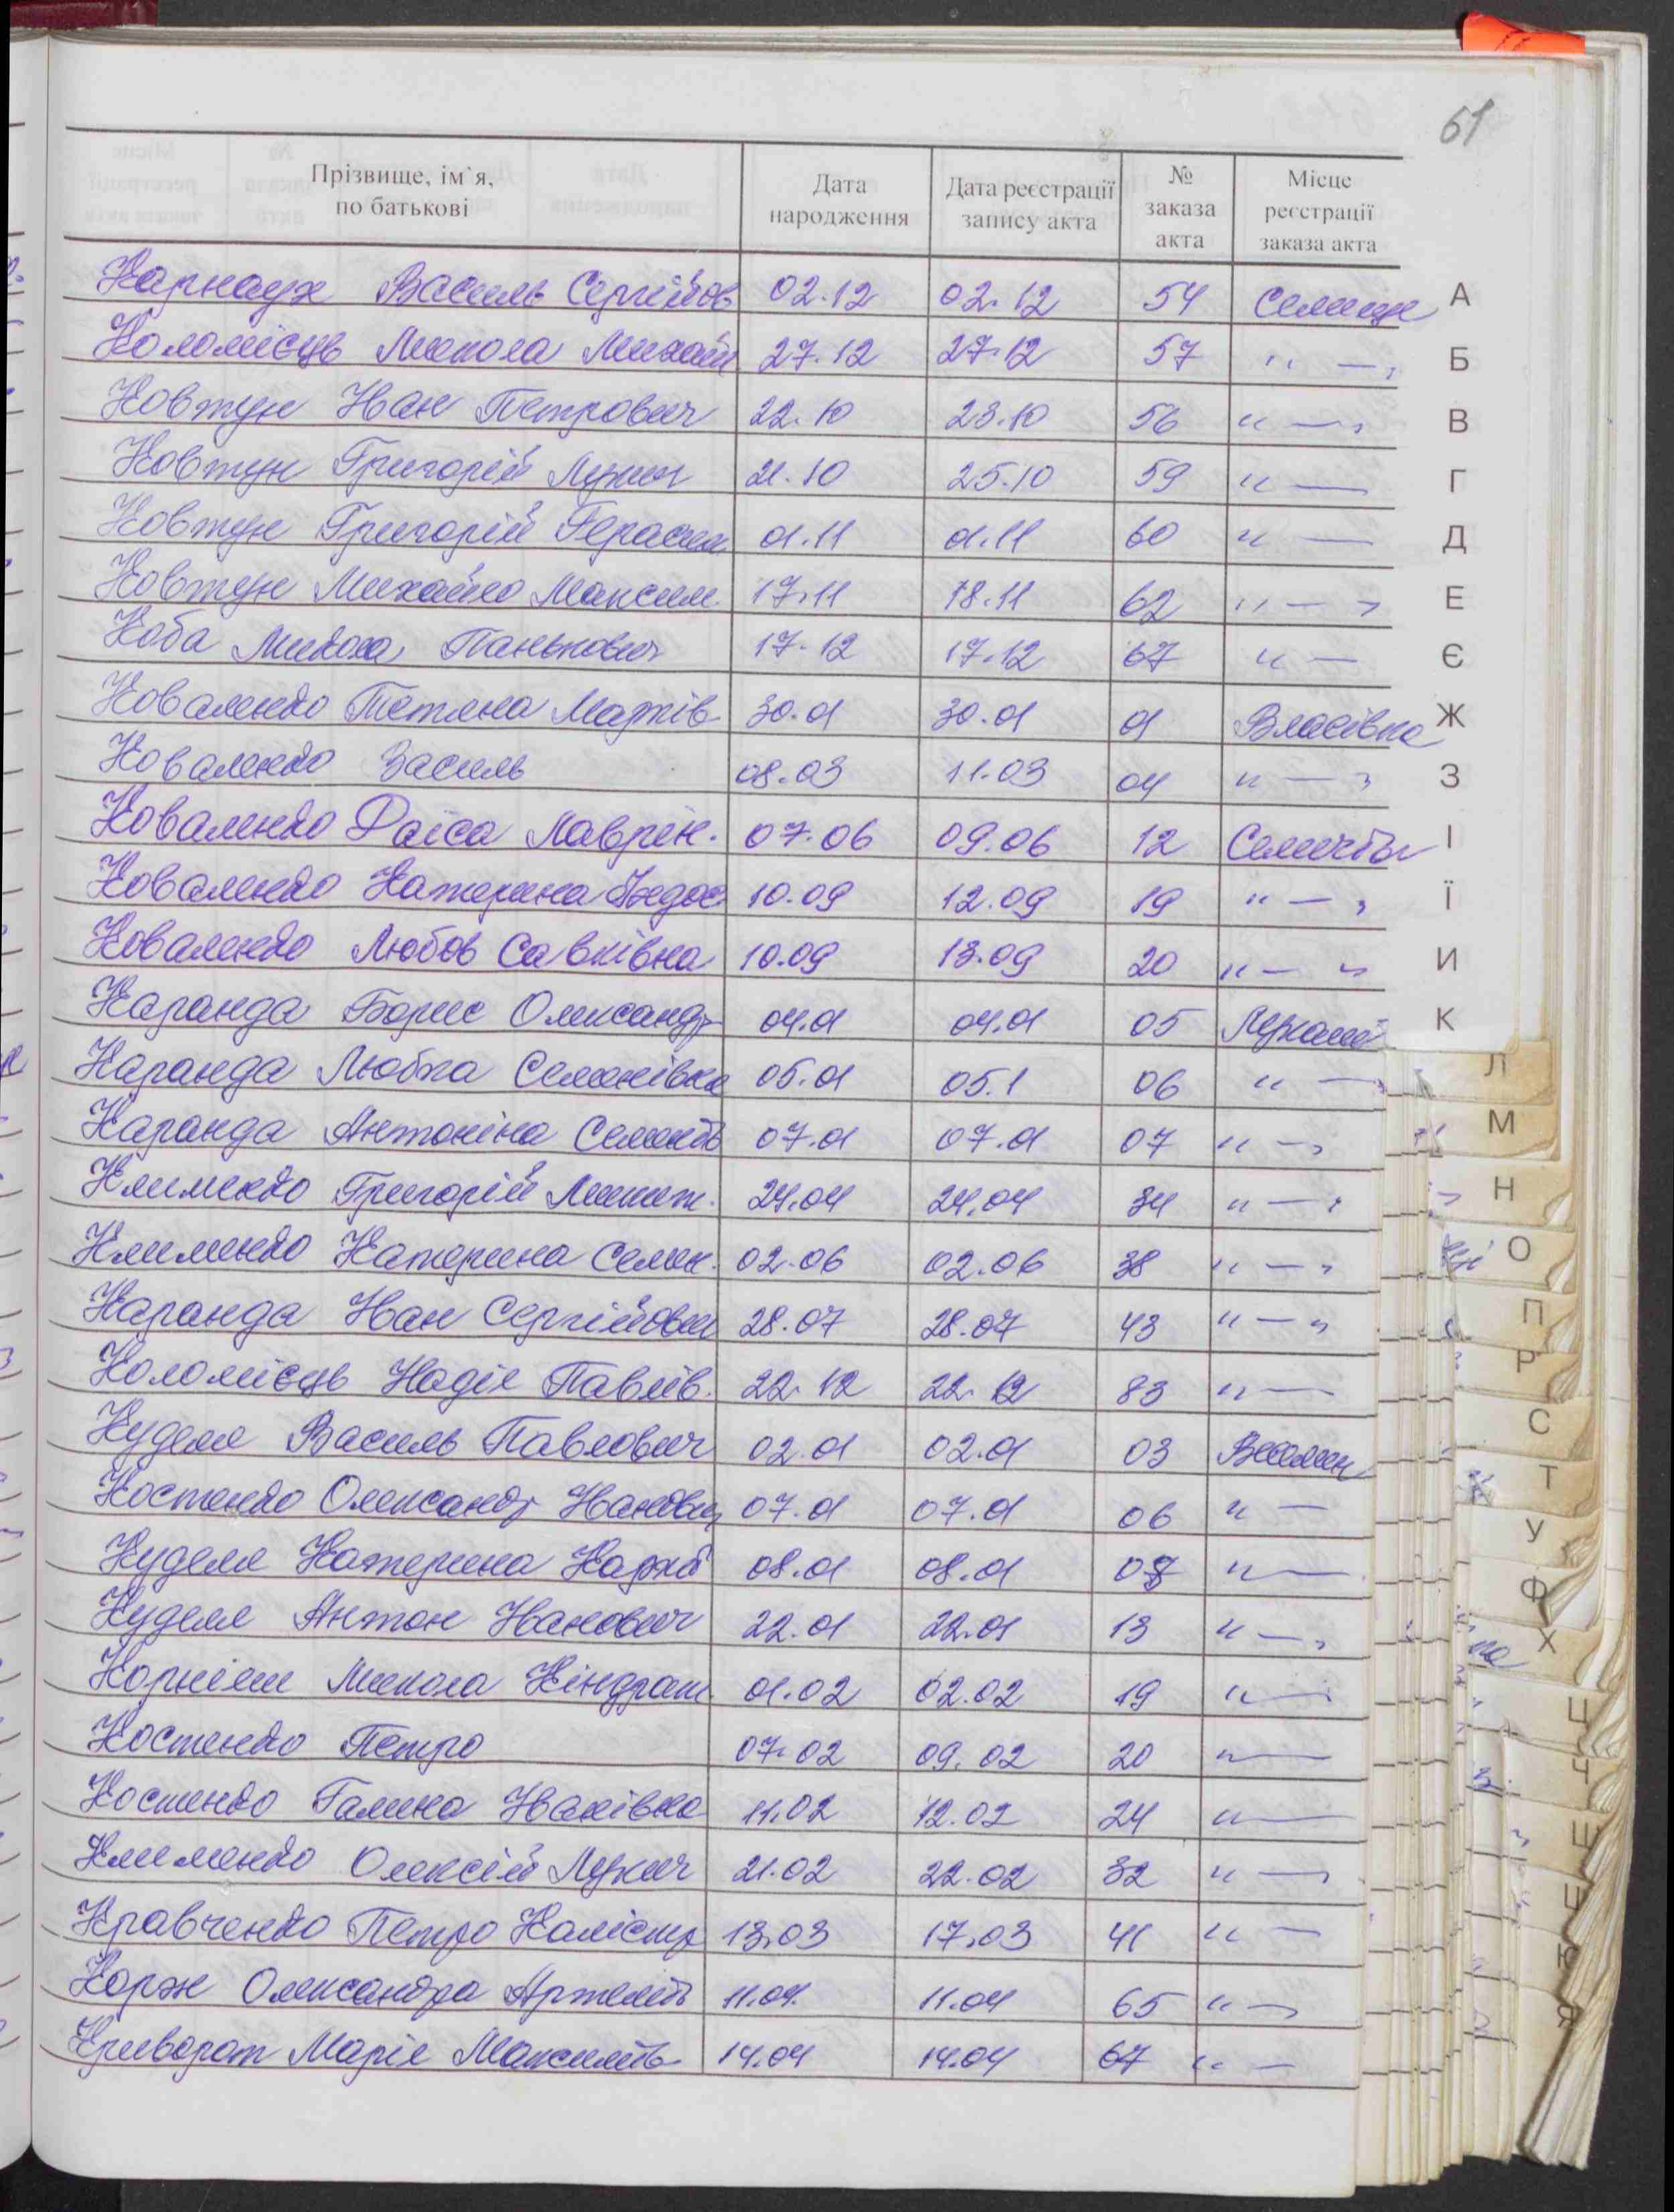 61
Прізвище, ім`я, по батькові Дата народження Дата реєстрації запису акта № заказа акта Місце реєстрації заказа акта
Карнаух Василь Сергійов 02.12 02.12 54 Селище
Коломієць Микола Михайл 27.12 27.12 57 " —"
Ковтун Іван Петрович 22.10 23.10 56 " —"
Ковтун Григорій Лукич 21.10 25.10 59 " —
Ковтун Григорій Герасим 01.11 01.11 60 " —
Ковтун Михайло Максим. 17.11 18.11 62 " —"
Коба Микола Панькович 17.12 17.12 67 " —
Коваленко Тетяна Марків 30.01 30.01 01 Власівка
Коваленко Василь 08.03 11.03 04 " —"
Коваленко Раїса Лаврін. 07.06 09.06 12
Коваленко Катерина Федос 10.09 12.09 19 " —"
Коваленко Любов Савківна 10.09 13.09 20 " —"
Каранда Борис Олександр 04.01 04.01 05
Каранда Любка Семенівна 05.01 05.1 06 " —"
Каранда Антоніна Семенів 07.01 07.01 07 " —"
Клименко Григорій Микит. 24.04 24.04 34 " —"
Клименко Катерина Семен. 02.06 02.06 38 " —"
Каранда Іван Сергійович 28.07 28.07 43 " —"
Коломієць Надія Павлів. 22.12 22.12 83 " —
Куделя Василь Павлович 02.01 02.01 03
Костенко Олександр Іванович 07.01 07.01 06 " —
Куделя Катерина Карпів 08.01 08.01 " —
Куделя Антон Іванович 22.01 22.01 13 " —"
Корнієш Микола Кіндрат 01.02 02.02 19 " —
Костенко Петро 07.02 09.02 20 " —
Костенко Галина Іванівна 11.02 12.02 24 " —
Клименко Олексій Лукич 21.02 22.02 32 " —"
Кравченко Петро Калістр 13.03 17.03 41 " —
Корж Олександра Артемів 11.04. 11.04 65 " —"
Криворот Марія Максимів 14.04 14.04 67 " —
А
Б
В
Г
Д
Е
Є
Ж
З
І
Ї
И
К
Л
М
Н
О
П
Р
С
Т
У
Ф
Х
Ц
Ч
Ш
Щ
Ю
Я